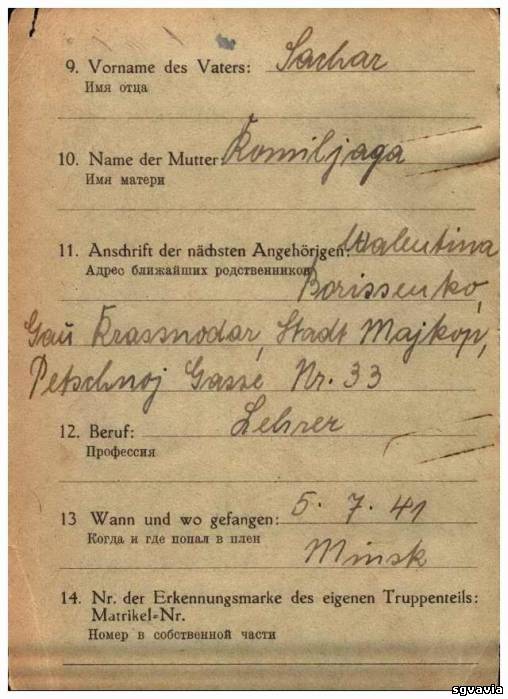 9. Vorname des Vaters: Sachar
Имя отца
10. Name der Mutter: Komiljaga
Имя матери
11. Anschrift der nächsten Angehörigen: Walentina
Адрес ближайших родственников
Borissenko,
Gau Krassnodar, Stadt Majkop,
Petschnoj Gasse Nr. 33
12. Beruf: Lehrer
Профессия
13 Wann und wo gefangen: 5. 7. 41
Когда и где попал в плен
Minsk
14. Nr. der Erkennungsmarke des eigenen Truppenteils:
Matrikel-Nr.
Номер в собственной части
sgvavia